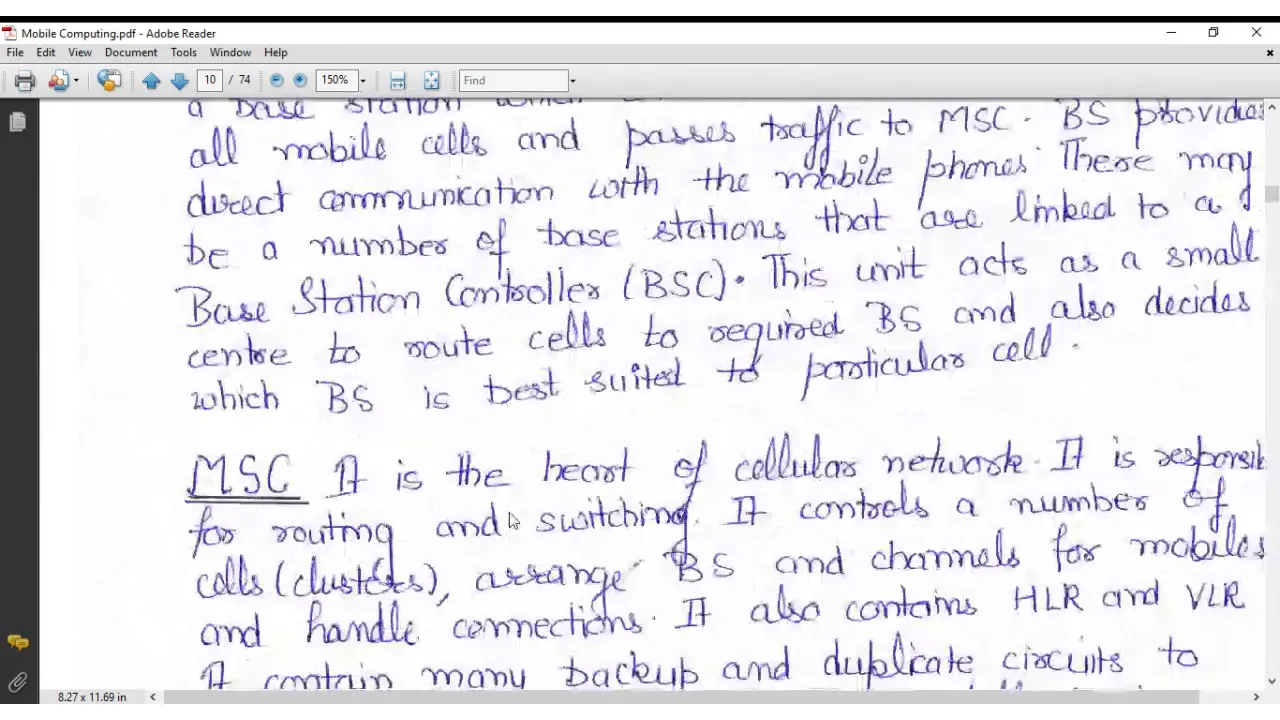 Mobile Computing.pdf - Adobe Reader
File Edit View Document Tools Window Help
10 / 74 150% Find
a base station which
all mobile cells and passes traffic to MSC. BS provides
direct communication with the mobile phones. There may
be a number of base stations that are linked to a
Base Station Controller (BSC). This unit acts as a small
centre to route cells to required BS and also decides
which BS is best suited to particular cell.
MSC It is the heart of cellular network. It is responsib
for routing and switching. It controls a number of
cells (clusters), arrange BS and channels for mobiles
and handle connections. It also contains HLR and VLR
It contain many backup and duplicate circuits to
8.27 x 11.69 in